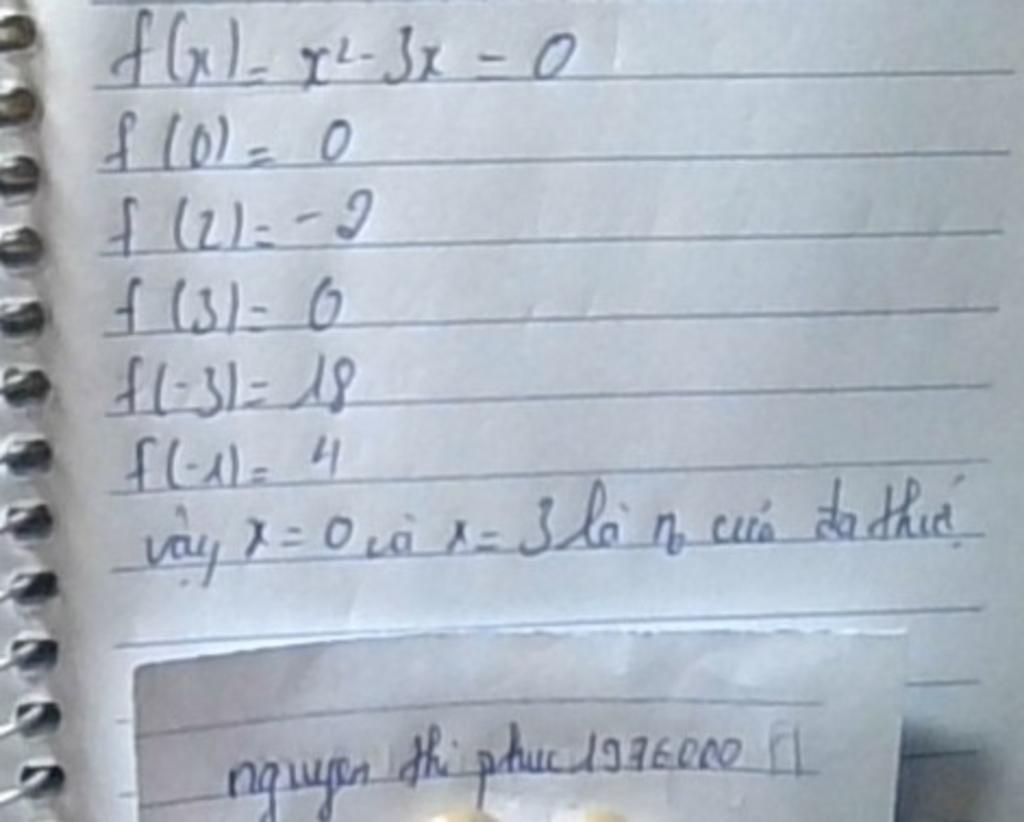 f(x) = x² - 3x = 0
f(0) = 0
f(2) = -2
f(3) = 0
f(-3) = 18
f(-1) = 4
vậy x = 0 và x = 3 là n₀ của đa thức
nguyen thi phuc 1976000